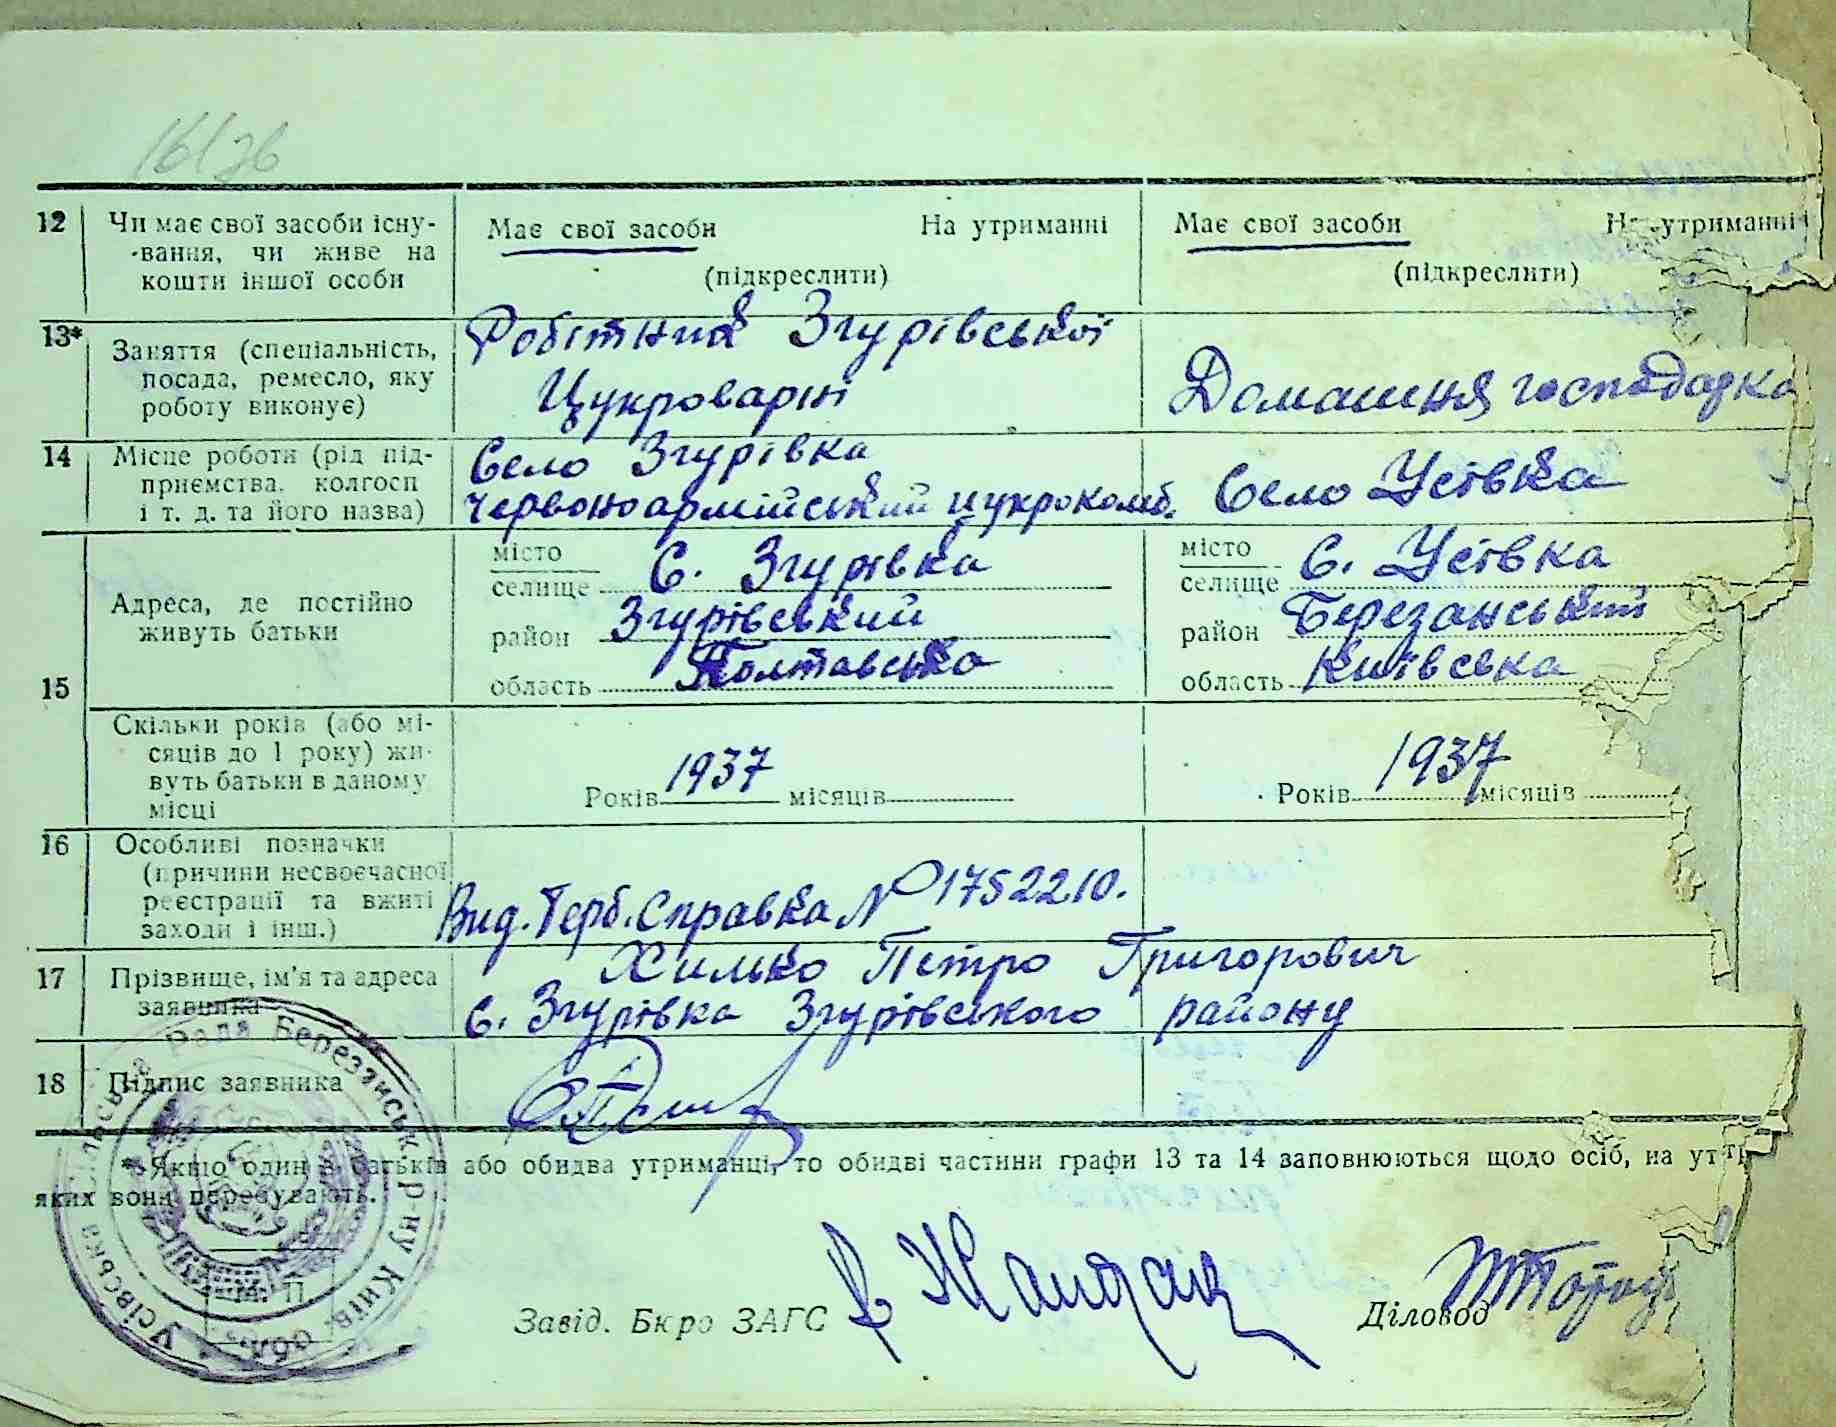 16/26
12 Чи має свої засоби існу-
-вання, чи живе на
кошти іншої особи
Має свої засоби На утриманні
(підкреслити)
Має свої засоби На утриманні
(підкреслити)
13* Заняття (спеціальність,
посада, ремесло, яку
роботу виконує)
Робітник Згурівської
Цукроварні
Домашня господарка
14 Місце роботи (рід під-
приємства, колгосп
і т. д. та його назва)
Село Згурівка
Червоноармійський цукрокомб.
Село Усівка
15 Адреса, де постійно
живуть батьки
місто
селище С. Згурівка
район Згурівський
область Полтавська
місто
селище С. Усівка
район Березанський
область Київська
Скільки років (або мі-
сяців до 1 року) жи-
вуть батьки в даному
місці
Років 1937 місяців
Років 1937 місяців
16 Особливі позначки
(причини несвоєчасної
реєстрації та вжиті
заходи і інш.)
Вид. Герб. Справка № 1752210.
17 Прізвище, ім'я та адреса
заявника
Хилько Петро Григорович
с. Згурівка Згурівського району
18 Підпис заявника
* Якщо один з батьків або обидва утриманці, то обидві частини графи 13 та 14 заповнюються щодо осіб, на ут
яких вони перебувають.
Усівська Сільська Рада Березанськ. р-ну Київ. обл.
М. П.
Завід. Бюро ЗАГС
Діловод